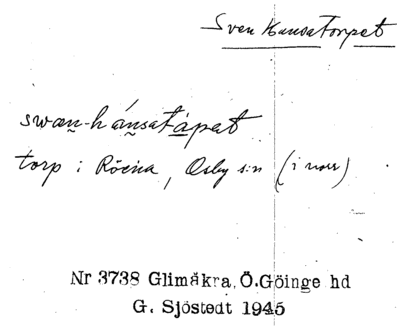 Sven Hansatorpet
swæn-hánsatåpet
torp i Röena, Osby s:n (i norr)
Nr 3738 Glimåkra, Ö.Göinge hd
G. Sjöstedt 1945